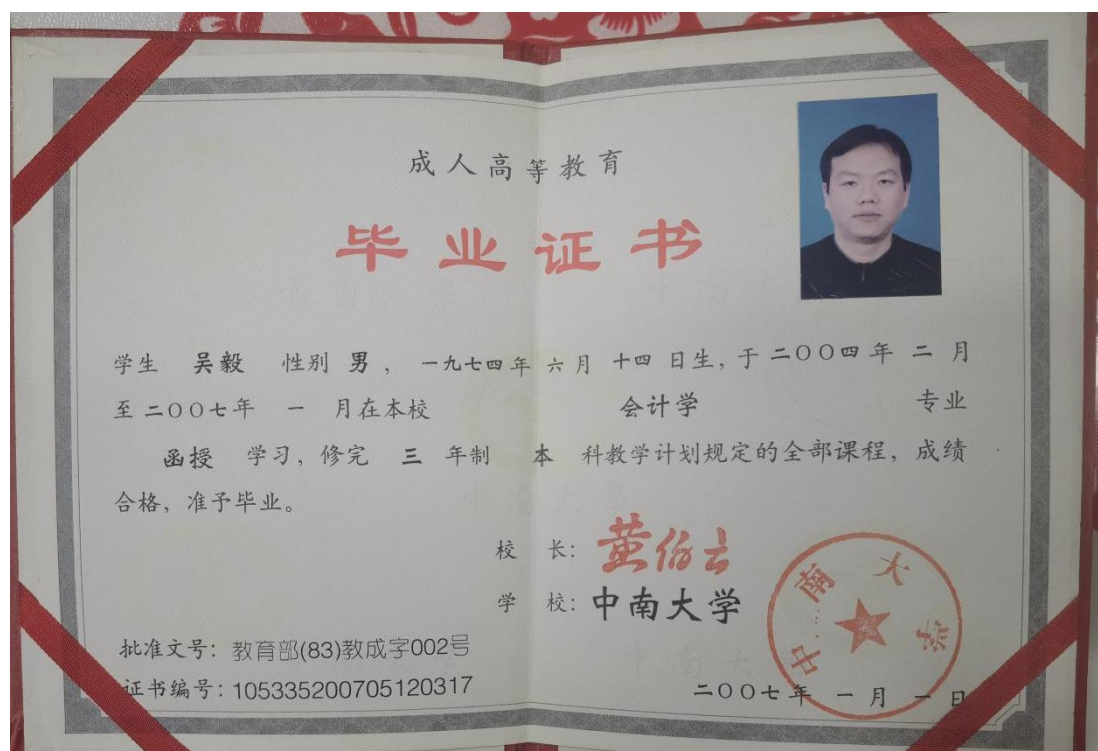 成人高等教育
毕业证书
学生 吴毅 性别 男，一九七四年 六月 十四 日生，于二〇〇四年 二 月
至二〇〇七年 一 月在本校 会计学 专业
函授 学习，修完 三 年制 本 科教学计划规定的全部课程，成绩
合格，准予毕业。
校 长：黄伯云
学 校：中南大学
中南大学
批准文号：教育部(83)教成字002号
证书编号：105335200705120317
二〇〇七年 一 月 一 日